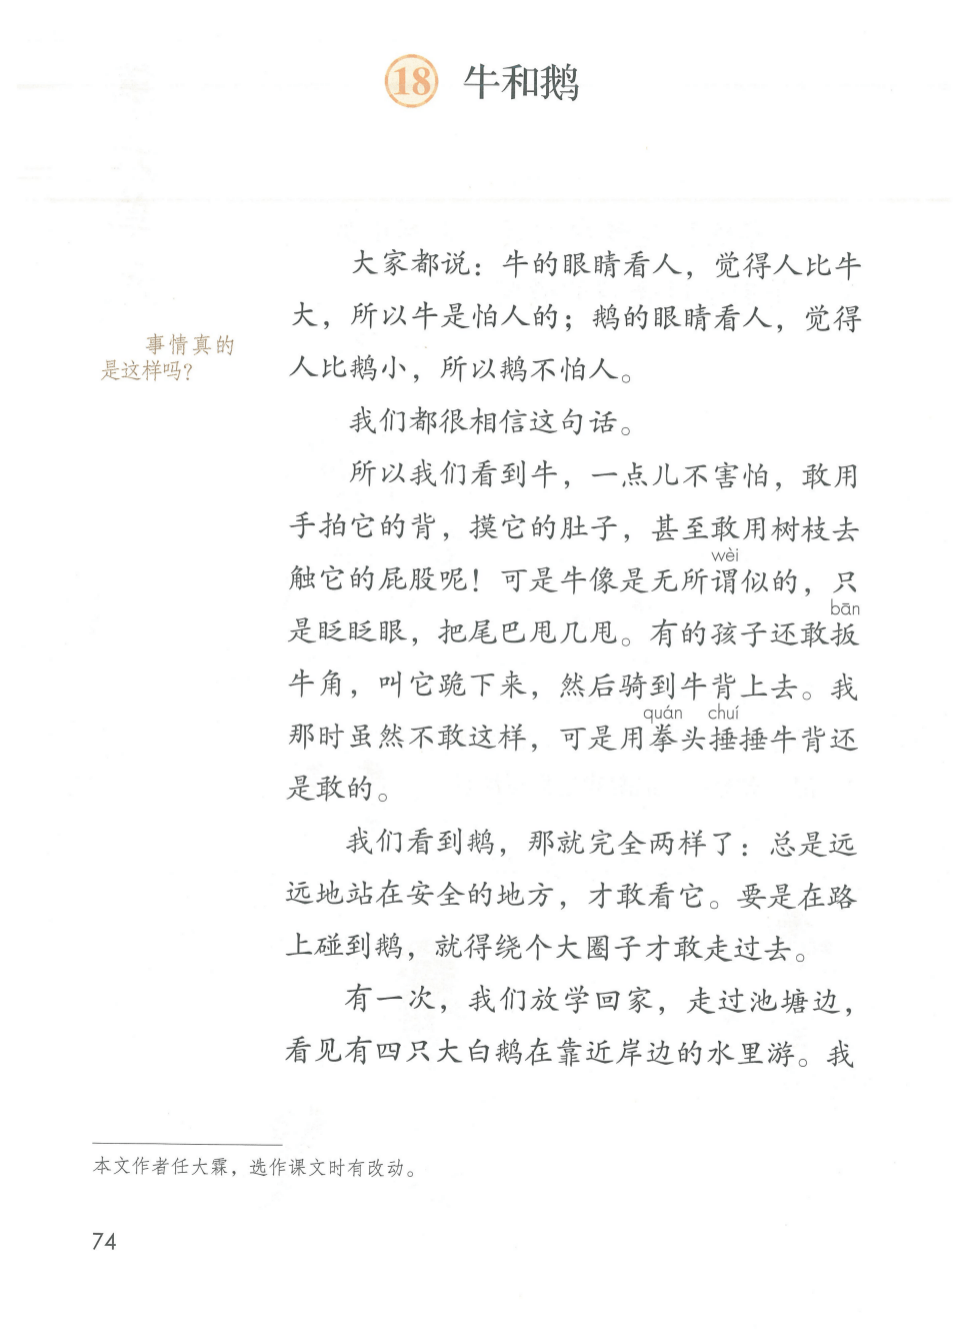 18 牛和鹅
大家都说：牛的眼睛看人，觉得人比牛
大，所以牛是怕人的；鹅的眼睛看人，觉得
人比鹅小，所以鹅不怕人。
事情真的
是这样吗？
我们都很相信这句话。
所以我们看到牛，一点儿不害怕，敢用
手拍它的背，摸它的肚子，甚至敢用树枝去
wèi
触它的屁股呢！可是牛像是无所谓似的，只
bān
是眨眨眼，把尾巴甩几甩。有的孩子还敢扳
牛角，叫它跪下来，然后骑到牛背上去。我
quán chuí
那时虽然不敢这样，可是用拳头捶捶牛背还
是敢的。
我们看到鹅，那就完全两样了：总是远
远地站在安全的地方，才敢看它。要是在路
上碰到鹅，就得绕个大圈子才敢走过去。
有一次，我们放学回家，走过池塘边，
看见有四只大白鹅在靠近岸边的水里游。我
本文作者任大霖，选作课文时有改动。
74